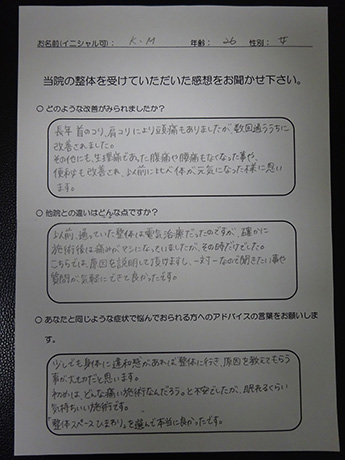 お名前(イニシャル可): K-M 年齢: 26 性別: 女
当院の整体を受けていただいた感想をお聞かせ下さい。
○ どのような改善がみられましたか?
長年 首のコリ、肩コリにより頭痛もありましたが、数回通ううちに
改善されました。
その他にも、生理痛であった腹痛や腰痛もなくなった事や、
便秘も改善され、以前に比べ体が元気になった様に思い
ます。
○ 他院との違いはどんな点ですか?
以前、通っていた整体は電気治療だったのですが、確かに
施術後は痛みがマシになっていましたが、その時だけでした。
こちらでは、原因を説明して頂けますし、一対一なので聞きたい事や
質問が気軽にできて良かったです。
○ あなたと同じような症状で悩んでおられる方へのアドバイスの言葉をお願いしま
す。
少しでも身体に違和感があれば整体に行き、原因を教えてもらう
事が大切だと思います。
初めは、どんな痛い施術なんだろう。と不安でしたが、眠れるくらい
気持ちいい施術です。
「整体スペースひまわり」を選んで本当に良かったです。